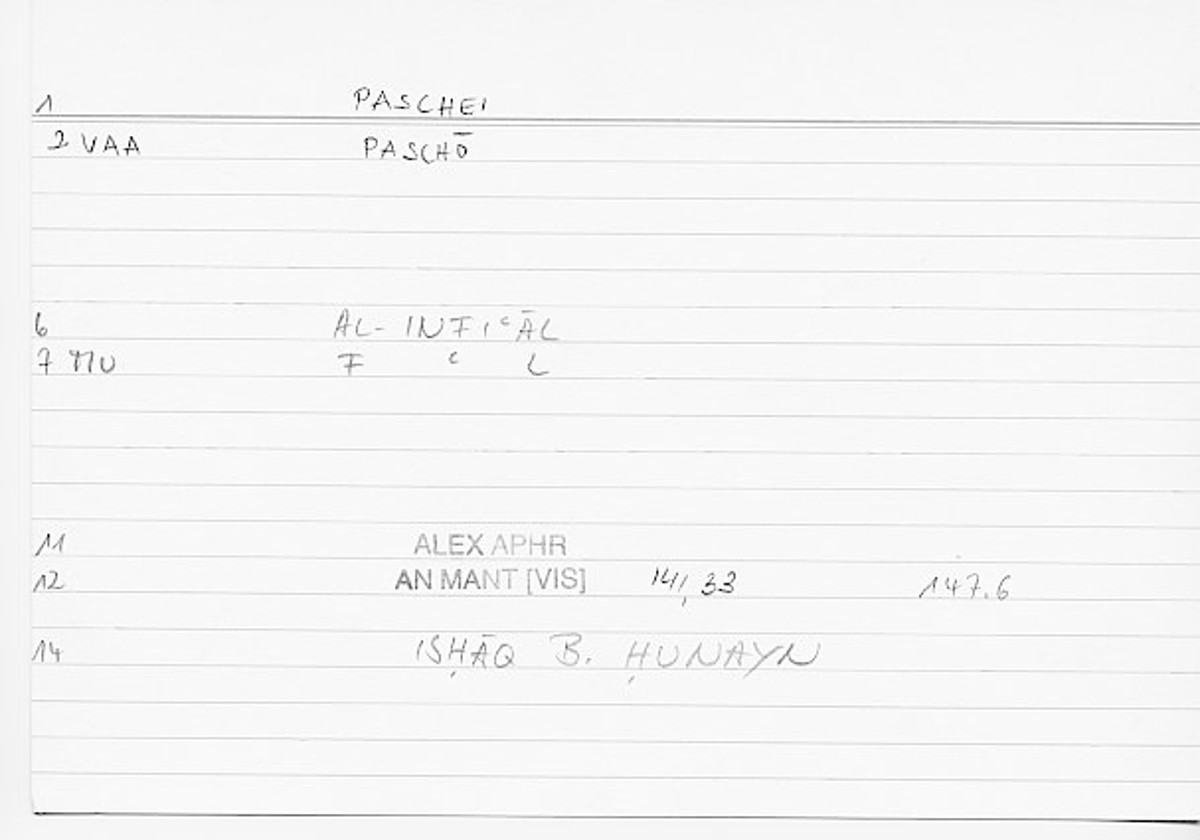 1 PASCHEI
2 VAA PASCHŌ
6 AL- INFIʿĀL
7 MU F ʿ L
11 ALEX APHR
12 AN MANT [VIS] 141,33 147.6
14 ISḤĀQ B. ḤUNAYN